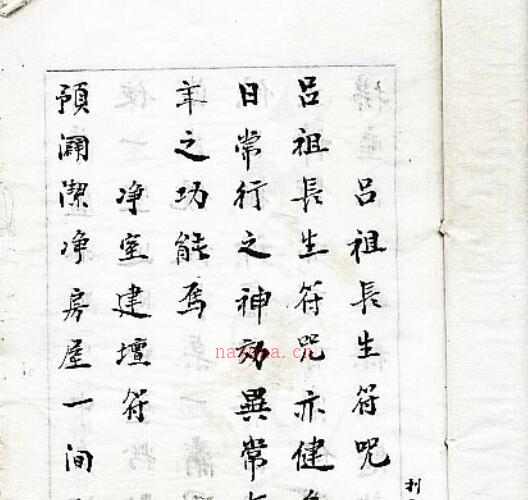 呂祖長生符咒
呂祖長生符咒亦健
日常行之神効異常
年之功能焉
净室建壇符
預瀾潔净房屋一间
nayona.cn